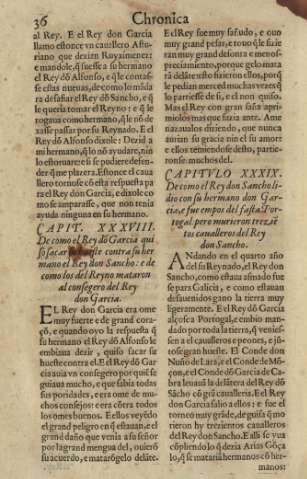 36
Chronica
al Rey. E el Rey don Garcia
llamo estonce vn cauallero Astu-
riano que dezien Ruyximenez:
e mandole, que fuesse a su hermano
el Rey dō Alfonso, e que le contas-
se estas nueuas, de como lo
ra desafiar el Rey dō Sancho, e que
le queria tomar el Reyno: e que le
rogaua como hermano, que le nō de-
xasse passar por su Reynado. E el
Rey dō Alfonso dixole: Dezid a
mi hermano, que lo nō ayudare, nin
lo estoruare: e si se pudiere defen-
der que me plazera. Estonce el caua
llero tornose cō esta respuesta pa
ra el Rey don Garcia, e dixole co-
mo se amparasse, que non tenia
ayuda ninguna en su hermano.
CAPIT. XXXVIII.
De como el Rey dō Garcia qui
so sacar hueste contra su her
mano el Rey don Sancho: e de
como los del Reyno mataron
al consegero del Rey
don Garcia.
EL Rey don Garcia era ome
muy fuerte e de grand cora-
çō, e quando oyo la respuesta que
su hermano el Rey dō Alfonso le
embiaua dezir, quiso sacar su
hueste contra el. E el Rey dō Gar
cia auia vn consegero por quiē se
guiaua mucho, e que sabia todas
sus poridades, e era ome de mu-
chos consejos: e era cōtra todos
los omes buenos. E ellos veyēdo
el grand peligro en que estauan, e el
grand daño que venia a su señor
por la grand mengua del, ouierō
su acuerdo, e matarōgelo delāte.
E el Rey fue muy sañudo, e ouo
muy grand pesar, e touo que le fazie
ran muy grand desonra e menos-
preciamiento, porque gelo mata
rā delāte: e sto fizieron ellos, porque
le pedian merced muchas vezes que
lo partiesse de si, e el non quiso.
Mas el Rey con gran saña apri-
miolos mas que fazia ante. Ame
nazaualos diziendo, que nunca
aurian su gracia nin el su amor
e ellos temiendose desto, partie-
ronse muchos del.
CAPITVLO XXXIX.
De como el Rey don Sancho li-
dio con su hermano don Gar-
cia, e fue empos del fasta Portu-
gal, e pero murieron trezie
tos caualleros del Rey
don Sancho.
ANdando en el quarto año
del su Reynado, el Rey don
Sancho, como estaua asmado fue
se para Galizia, e como estauan
desauenidos gano la tierra muy
ligeramente. E el Rey dō Garcia
alçose a Portugal, e embio man-
dado por toda la tierra, que viniess-
en a el caualleros e peones, e jū-
to se grand hueste. E el Conde don
Nuño de Lara, e el Conde de Mō-
çon, e el Conde dō Garcia de Ca-
bra leuauā la delātera del Rey dō
Sācho cō grā caualleria. E el Rey
don Garcia salio a ellos: e fue el
torneo muy grāde, de guisa que mu
rieron hy trezientos caualleros
del Rey don Sancho. E alli se vua
cōpliendo lo que dezia Arias Gōça
lo, que se matariā hermanos cō her-
manos: